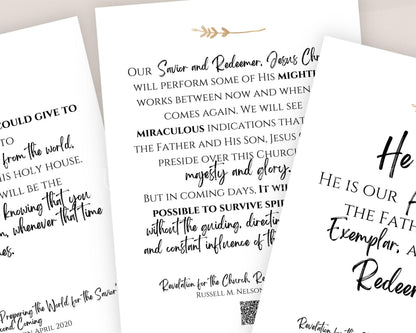 COULD GIVE TO
TO
from the world,
HIS HOLY HOUSE.
WILL BE THE
knowing that you
whenever that time
Preparing the World for the Savior's
Second Coming
APRIL 2020
OUR Savior and Redeemer, Jesus
WILL PERFORM SOME OF HIS MIGHTI
WORKS BETWEEN NOW AND WHEN
COMES AGAIN. WE WILL SEE
MIRACULOUS INDICATIONS THAT
THE FATHER AND HIS SON, JESUS
PRESIDE OVER THIS CHURCH
majesty and glory.
BUT IN COMING DAYS, IT WI
POSSIBLE TO SURVIVE SPI
without the guiding, directin
and constant influence of th
Revelation for the Church, Re
RUSSELL M. NELSO
He
HE IS OUR
THE FATH
Exemplar, A
Redeem
Revelation for th